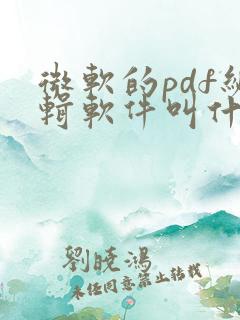 微軟的pdf編
輯軟件叫什
劉曉鴻
未經同意禁止轉載